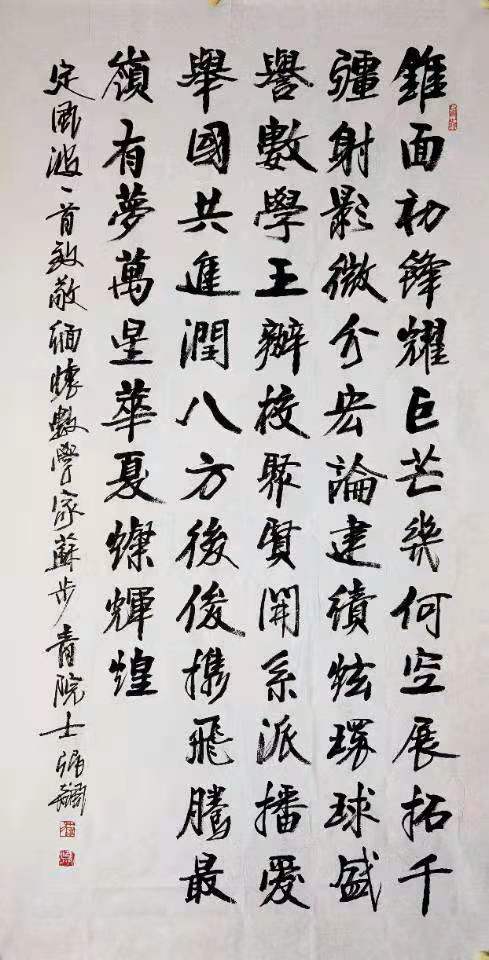 錐面初鋒耀巨芒幾何空展拓千
疆射影微分宏論建績炫環球盛
譽數學王辦校聚賢開系派播愛
舉國共進潤八方後俊攜飛騰最
嶺有夢萬星華夏燦輝煌
定風波一首致敬緬懷數學家蘇步青院士